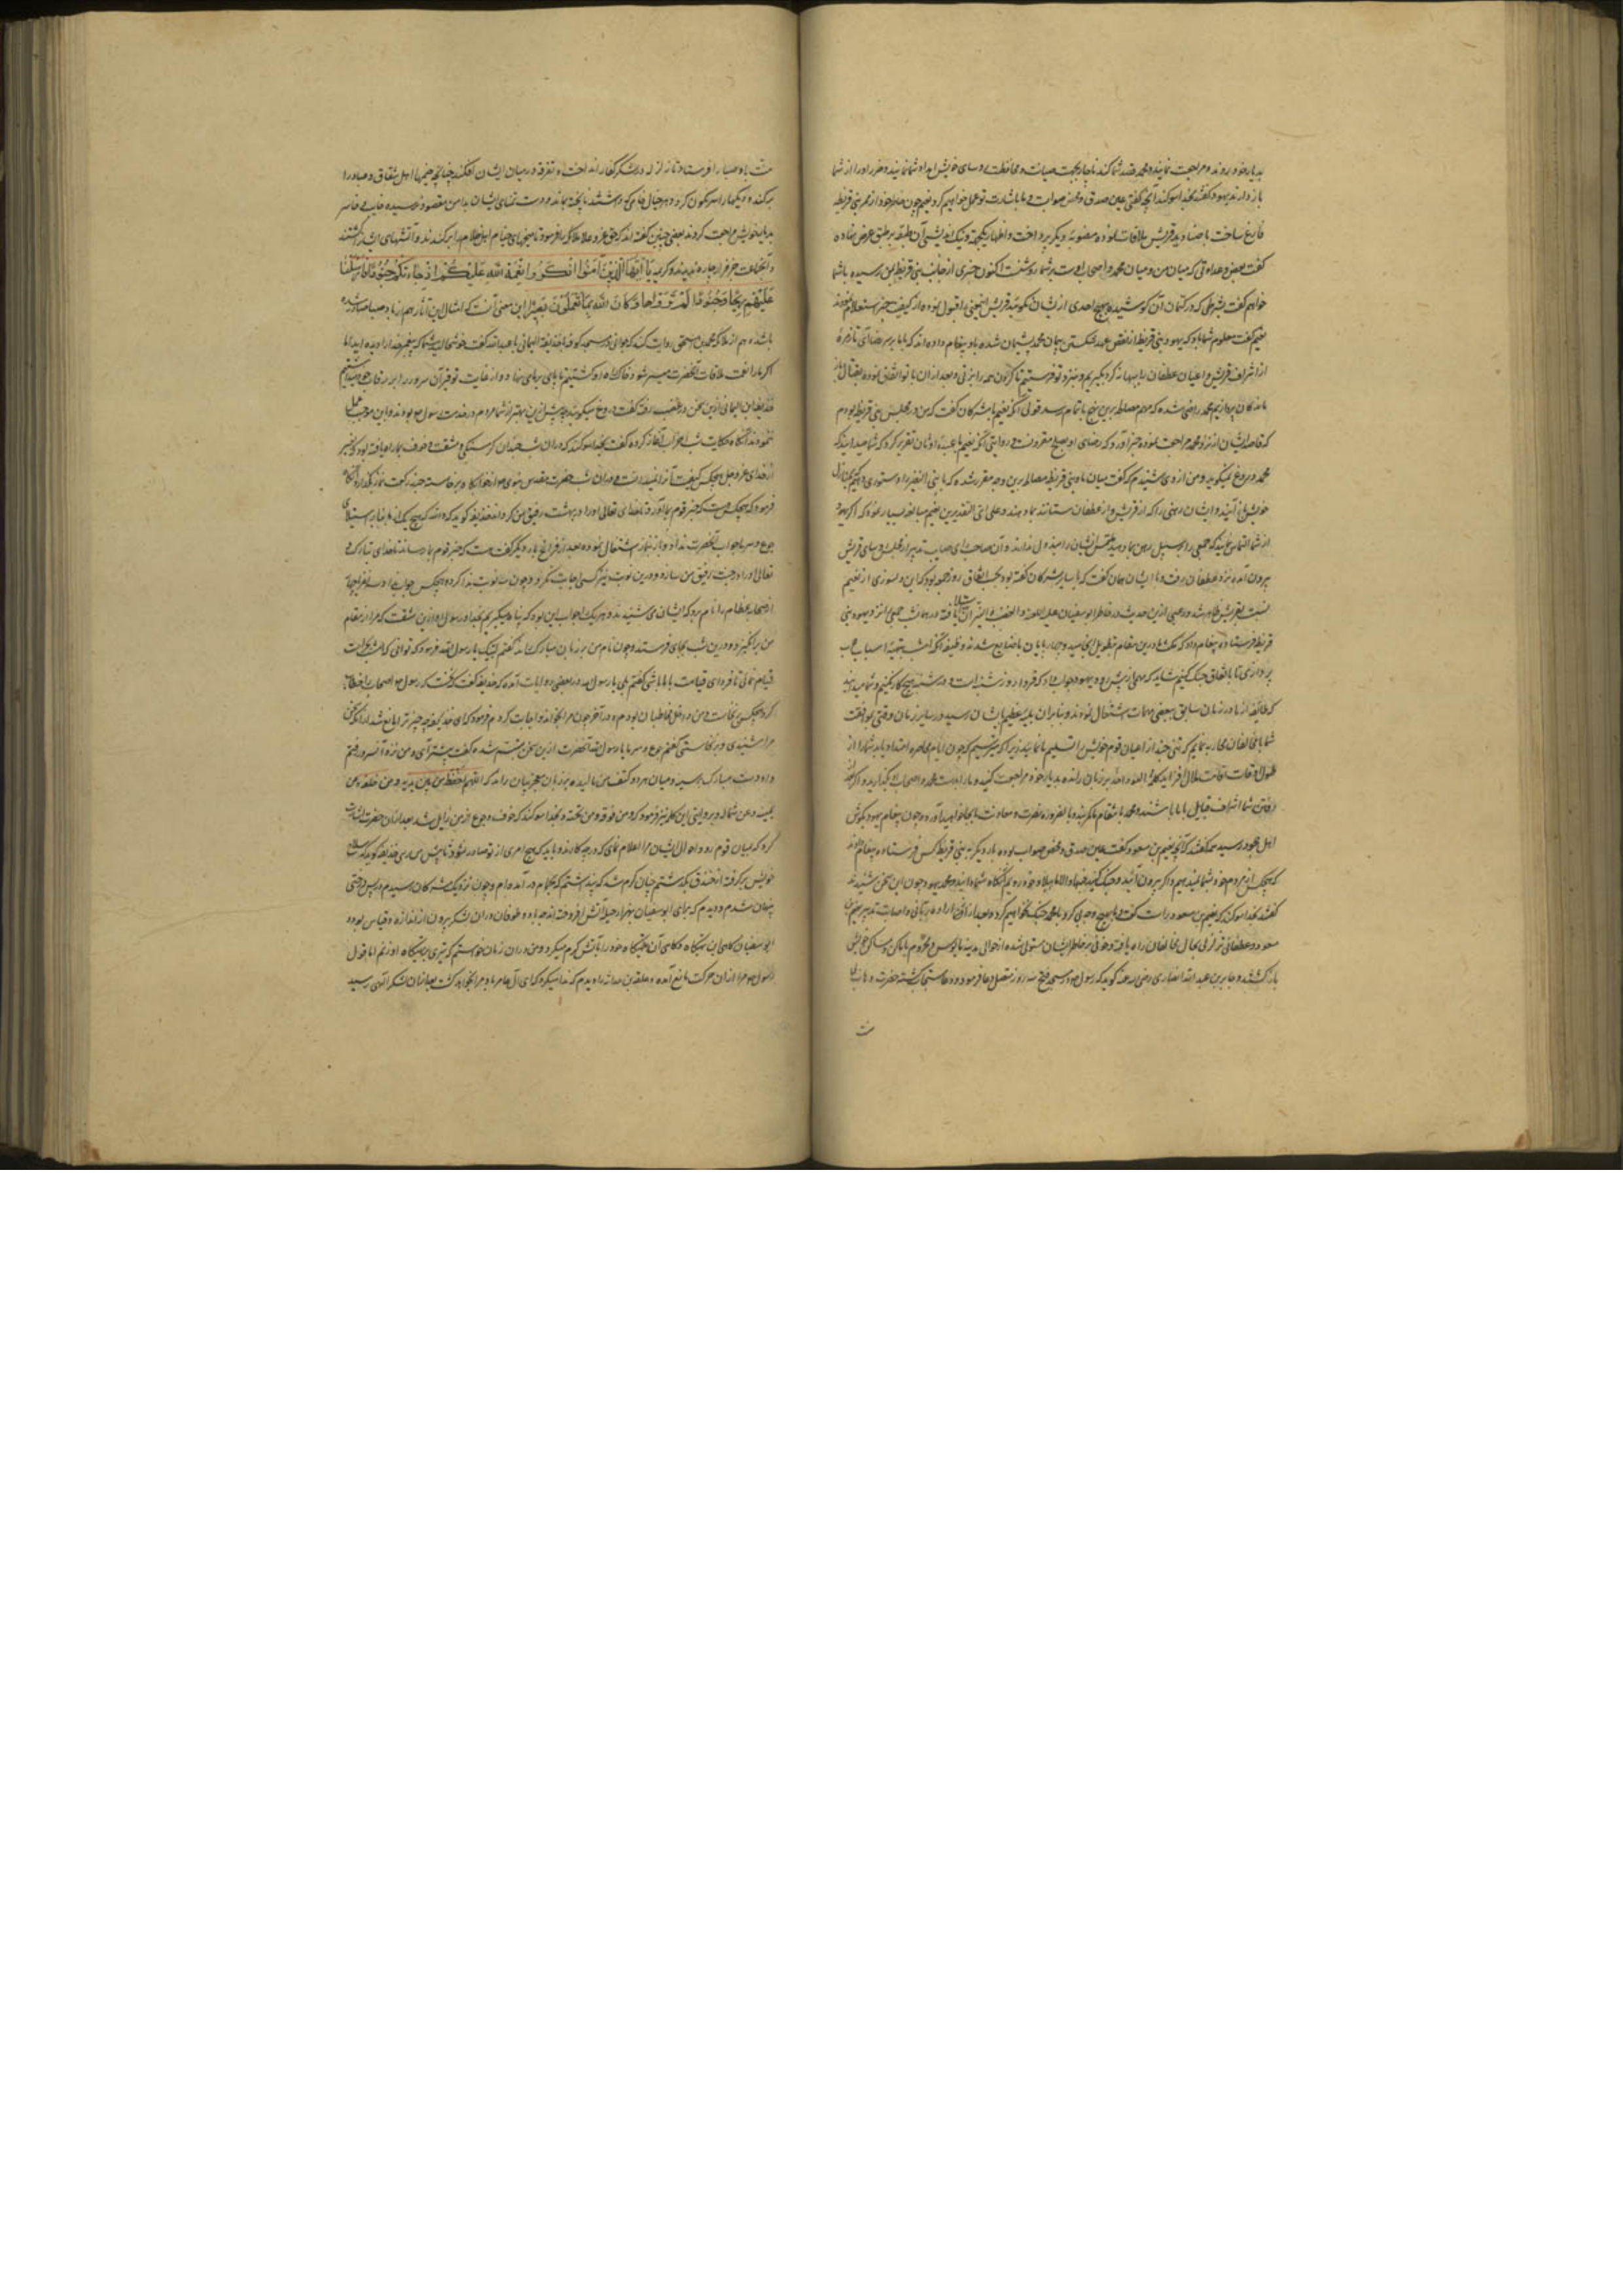 بدیار خود روند و مراجعت نمایند و محمد قصد شما کند ناچار بجهت صیانت و محافظت روسای خویش امداد شما نمایند و ضرر او را از شما
باز دارند یهود گفتند بخدا سوگند آنچه گفتی عین صدق و محض صوابست و ما باشارت تو عمل خواهیم کرد نعیم چون خاطر خود از ممر بنی قریظه
فارغ ساخت با صنادید قریش ملاقات نموده منصوبه دیگر پرداخت و اظهار یکجهتی و نیک اندیشی آن طبقه بر طبق عرض نهاده
گفت بغض و عداوتی که میان من و میان محمد و اصحاب اوست بر شما روشنست اکنون خبری از جانب بنی قریظه بمن رسیده با شما
خواهم گفت بشرطی که در کتمان آن کوشیده بهیچ احدی از ایشان نگویید قریش اینمعنی را قبول نموده از کیفیت خبر استعلام نمودند
نعیم گفت معلوم شما باد که یهود بنی قریظه از نقض عهد و شکستن پیمان محمد پشیمان شده باو پیغام داده اند که ما برسم رضای تو از زمره
از اشراف قریش و اعیان غطفان را ببهانه گرو بگیریم و نزد تو فرستیم تا گردن همه را بزنی و بعد از آن با تو اتفاق نموده بقتال
ماندگان پردازیم محمد راضی شده که مهم مصالحه برین نهج باتمام رسد قولی آنکه نعیم با مشرکان گفت که من در مجلس بنی قریظه بودم
که قاصد ایشان از نزد محمد مراجعت نموده خبر آورد که رضای او بصلح مقرونست و روایتی آنکه نعیم با عبده اوثان تقریر کرد که شما میدانید که
محمد دروغ نمیگوید و من از وی شنیدم که گفت میان ما و بنی قریظه مصالحه برین وجه مقرر شده که ما بنی النضیر را دستوری دهیم تا بمنازل
خویش باز آیند و ایشان رهنی را که از قریش و از غطفان ستانند بما دهند و علی ای التقدیرین نعیم مبالغه بسیار نمود که اگر یهود
از شما التماس نماید که جمعی را بر سبیل رهن بما دهید ملتمس ایشان را مبذول ندارند و آن صاحب رای صایب تدبیر از مجلس روسای قریش
بیرون آمده نزد غطفان رفت و با ایشان همان گفت که با سایر مشرکان گفته بود بحسب اتفاق روز جمعه بود که این دلسوزی از نعیم
نسبت بقریش ظاهر شد و رعبی ازین حدیث در خاطر ابوسفیان علیه اللعنه و الغضب و النیران استیلا یافته در همان شب جمعی را نزد یهود بنی
قریظه فرستاده پیغام داد که مکث ما درین مقام بتطویل انجامید و چهارپایان ما ضایع شدند وظیفه آنکه امشب بتهیه اسباب حرب
پردازی تا باتفاق جنگ کنیم شاید که مهمی از پیش رود یهود جواب داد که فردا روز شنبه است و در شنبه هیچ کار نکنیم و شما میدانید
که طایفه از ما در زمان سابق ببعضی مهمات اشتغال نمودند و بنابر آن بلیه عظیم بایشان رسید و در سایر زمان وقتی بموافقت
شما با مخالفان محاربه نماییم که تنی چند از اعیان قوم خویش را تسلیم ما نمایید زیرا که میترسیم که چون ایام محاصره امتداد یابد شما را از
طول اوقات اقامت ملال افزاید کلمه العود احمد بر زبان رانده بدیار خود مراجعت کنید و ما را بدست محمد و اصحاب بگذارید و اگر
رهن شما اشراف قبایل با ما باشند و محمد بانتقام ما کمر بندد بالضروره نصرت و معاونت ما بجا خواهید آورد چون پیغام یهود بگوش
اهل جحود رسید همه گفتند که آنچه نعیم بن مسعود گفت عین صدق و محض صواب بوده بار دیگر به بنی قریظه کس فرستاده پیغام دادند
که هیچکس از مردم خود بشما نمیدهیم و اگر بیرون آئید و جنگ کنید فبها و الا ما ببلاد خود رویم آنگاه شما دانید و محمد یهود چون این سخن شنیدند
گفتند بخدا سوگند که نعیم بن مسعود راست گفت و ما بهیچ وجه بی گرو با محمد جنگ نخواهیم کرد و بعد از آن بارادت ربانی و اصابت تدبیر نعیم بن
مسعود و غطفانی تزلزلی بحال مخالفان راه یافته و خوفی بر خاطر ایشان مستولی شده از حوالی مدینه مایوس و محروم باماکن و مساکن خویش
باز گشتند و جابر بن عبدالله انصاری رضی الله عنه گوید که رسول ص در مسجد فتح سه روز متصل دعا فرمود و دعا مستجاب گشته حضرت واهب
منت باد صبا را فرستاد تا زلزله در لشکر کفار انداخت و تفرقه در میان ایشان افکند چنانچه خیمها اهل شقاق و عناد را
برکنده و دیگها را سرنگون کرد و هر خیال خامی که داشتند ناپخته بماند و دست تمنای ایشان بدامن مقصود نرسیده خایب و خاسر
بدیار خویش مراجعت کردند بعضی چنین گفته اند که حق عز و علا ملائکه را فرمود تا میخهای خیام اهل ظلام را برکندند و آتشهای ایشان را کشتند
و آنجماعت جز فرار چاره ندیدند و کریمه یا ایها الذین آمنوا اذکروا نعمة الله علیکم اذ جاءتکم جنود فارسلنا
علیهم ریحا و جنودا لم تروها و کان الله بما تعملون بصیرا این معنی آنست که امثال این آثار هم از باد صبا صادر شده
باشد و هم از ملائکه محمد بن اسحق روایت کند که جوانی در مسجد کوفه با حذیفة الیمانی یا عبدالله گفت خوشحال شما که پیغمبر خدا را دیده اید اما
اگر ما را نعمت ملاقات آنحضرت میسر شدی خاک راه او گشتیمی
حذیفة بن الیمانی ازین سخن در غضب رفته گفت دروغ میگویید چه پیش ازین بهتر از شما مردم در خدمت رسول ص بودند و باین موجب عمل
ننمودند آنگاه حکایت شب احزاب آغاز کرده گفت بخدا سوگند که در آن شب چندان گرسنگی و مشقت و خوف بما راه یافته بود که غیر
از خدای عز و جل هیچکس کیفیت آنرا نمیدانست و در آن شب حضرت مقدس نبوی ص از خوابگاه برخاسته چند رکعت نماز بگذارد آنگاه
فرمود که هیچکس هست که خبر قوم بما آورد تا خدای تعالی او را در بهشت رفیق من گرداند حذیفه گوید که والله که هیچ یکی از ما بنا بر استیلای
جوع و سرما جواب آنحضرت نداد و باز بنماز اشتغال نموده بعد از فراغ بار دیگر گفت هست که خبر قوم بما رساند تا خدای تبارک و
تعالی او را در جنت رفیق من سازد و درین نوبت نیز کسی اجابت نکرد و چون سه نوبت ندا کرد و هیچکس جواب نداد
اصحاب عظام را نام برد که ایشان می شنیدند و هر یک را جواب این بود که پناه میگیریم بخدا و رسول او ازین مشقت که مرا از مقام
من برانگیزد و درین شب بجای فرستد و چون نام من بر زبان مبارک راند گفتم لبیک یا رسول الله فرمود که توانی که امشب بحراست
قیام نمائی تا فردای قیامت با ما باشی گفتم بلی یا رسول الله و در بعضی روایات آمده که حذیفه گفت که رسول ص اصحاب را خطاب
کرد هیچکس برنخاست و من داخل مخاطبان بودم و در آخر چون مرا بخواند و اجابت کردم فرمود که ای حذیفه چه چیز ترا مانع شد از آنکه سخن
مرا شنیدی و برنخاستی گفتم جوع و سرما یا رسول الله آنحضرت ازین سخن متبسم شده گفت پیشتر آی و من نزد آنسرور رفتم
و او دست مبارک بر سر و میان هر دو کتف من مالیده بر زبان معجز بیان راند که اللهم احفظه من بین یدیه و من خلفه و عن
یمینه و عن شماله و بروایتی این کلمه نیز فرمود که و من فوقه و من تحته و بخدا سوگند که خوف و جوع از من زایل شد بعد از آن حضرت اشارت
کرد که بمیان قوم رو و احوال ایشان مرا اعلام نمای که در چه کارند و باید که هیچ امری از تو صادر نشود تا پیش من رسی حذیفه گوید که سلاح
خویش برگرفته از خندق بگذشتم چنان گرم شد که پنداشتم که بحمام درآمده ام و چون نزدیک مشرکان رسیدم در پس درختی
پنهان شدم و دیدم که برای ابوسفیان آتش افروخته اند چه باد و طوفان در آن لشکر بیرون از اندازه و قیاس بود و
ابوسفیان گاهی این تهیگاه و گاهی آن تهیگاه خود را بآتش گرم میکرد و من در آن زمان خواستم که تیری بر تهیگاه او زنم اما قول
رسول ص مرا از آن حرکت مانع آمد و علقمة بن علاثه را دیدم که ندا میکرد که ای آل عامر باد مرا بخواهد کشت بعد از آن لشکر الهی رسید